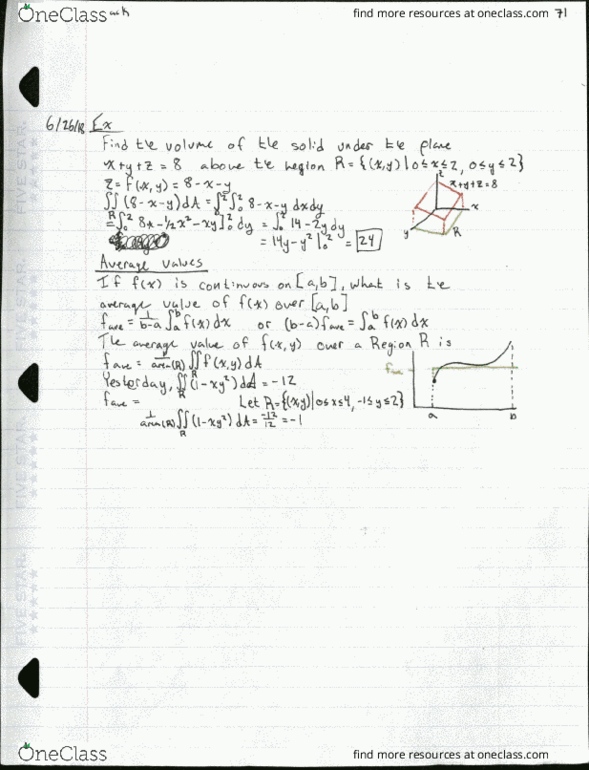 OneClass
find more resources at oneclass.com 71
6/26/18 Ex
Find the volume of the solid under the plane
x+y+z=8 above the region R={(x,y)|0≤x≤2, 0≤y≤2}
z=f(x,y)=8-x-y
∬_R (8-x-y)dA=∫₀²∫₀² 8-x-y dxdy
=∫₀² 8x-½x²-xy]₀² dy = ∫₀² 14-2y dy
=14y-y²|₀² = 24
z
x+y+z=8
x
y
R
Average Values
If f(x) is continuous on [a,b], what is the
average value of f(x) over [a,b]
f_ave = 1/(b-a) ∫ₐᵇ f(x)dx or (b-a)f_ave = ∫ₐᵇ f(x)dx
The average value of f(x,y) over a Region R is
f_ave = 1/area(R) ∬_R f(x,y)dA
Yesterday, ∬_R (1-xy²)dA = -12
f_ave = Let R={(x,y)|0≤x≤4, -1≤y≤2}
1/area(R) ∬_R (1-xy²)dA = -12/12 = -1
f_ave
a b
FIVE STAR.
FIVE STAR.
FIVE STAR.
FIVE STAR.
OneClass
find more resources at oneclass.com